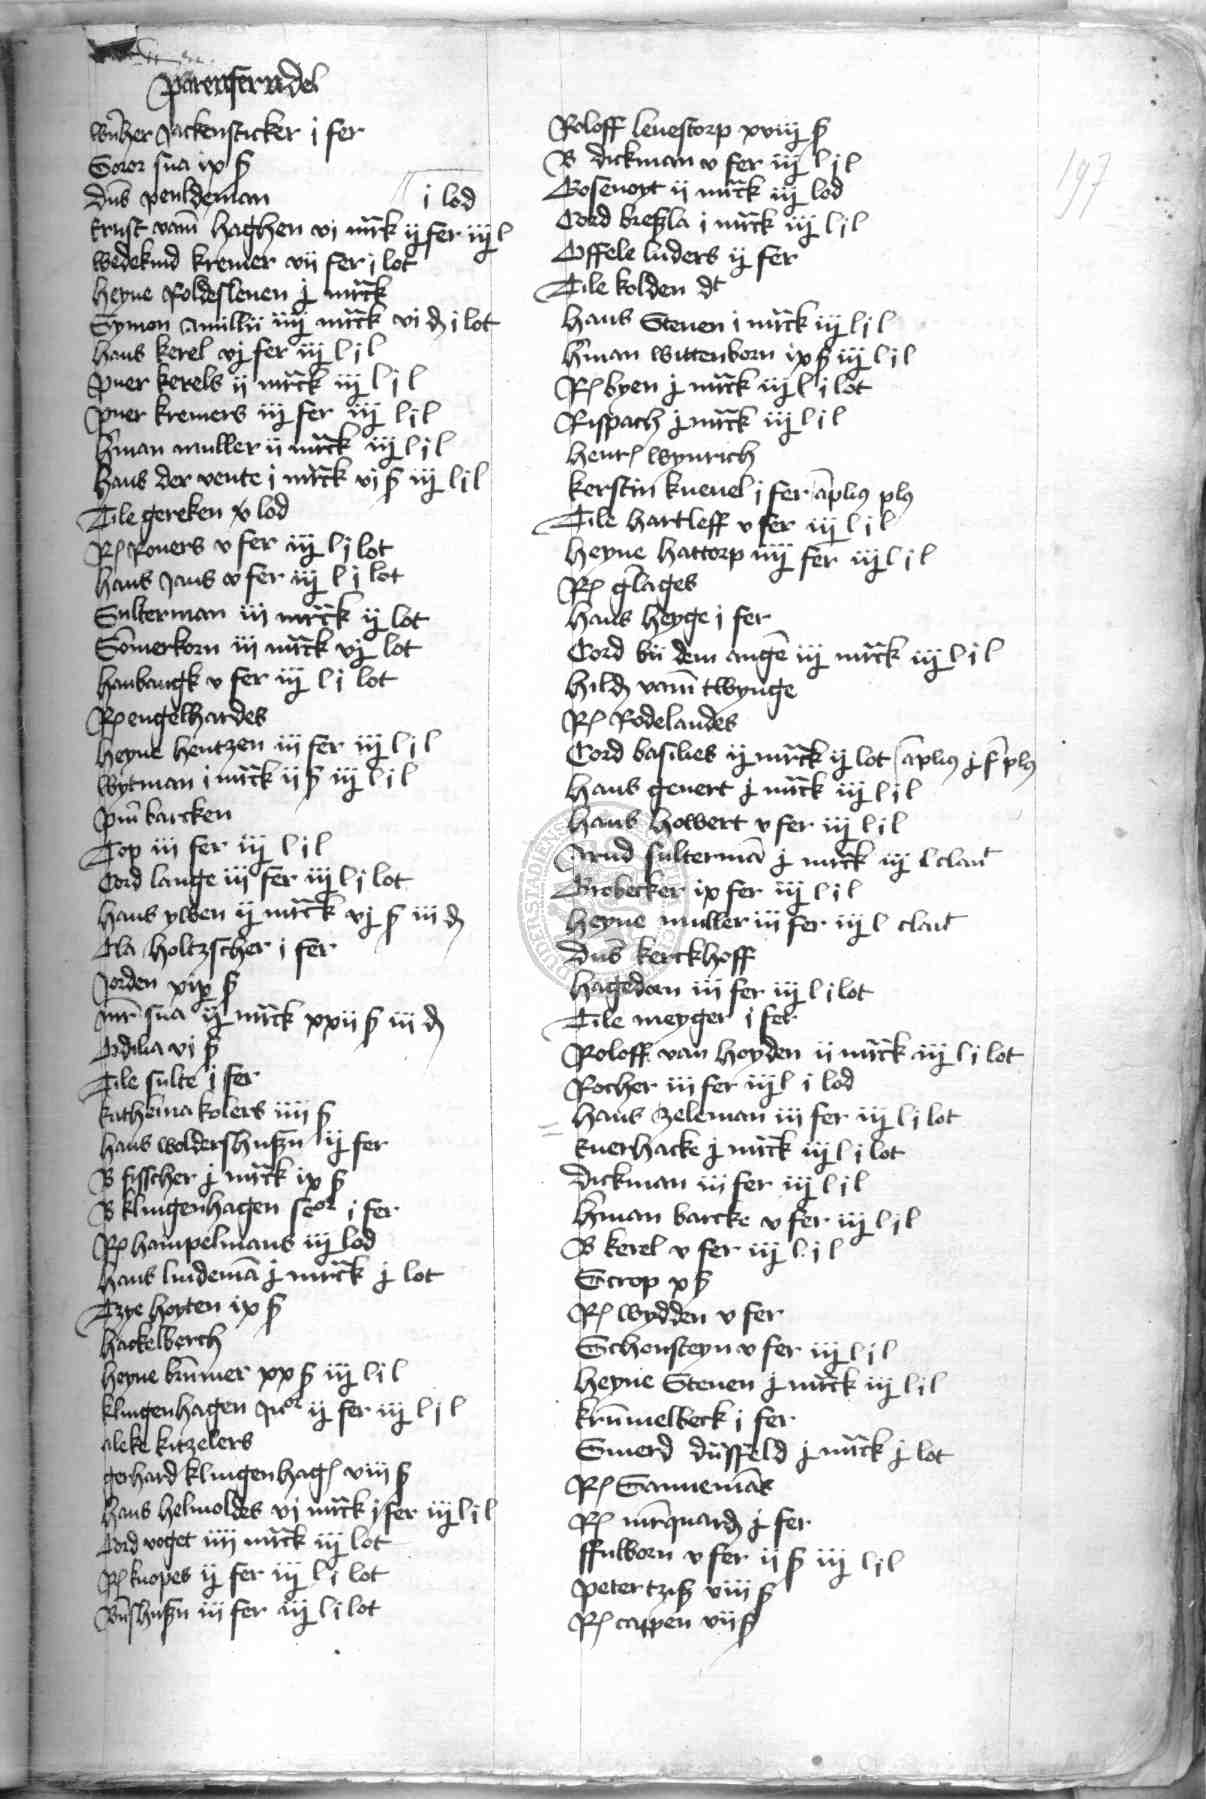 Wernher Jackensticker j fer
Soror sua ix ß
dns penldeman i lod
Ernst vam haghen vj mrck ij fer iij l
Wedekind kremer vii fer i lot
heyne Roldesleuen j mrck
Symon amillii iiij mrck vi d i lot
hans kerel vj fer iij l j l
puer kerels ij mrck iij l j l
puer kremers iij fer iij l j l
hman muller ii mrck iij l j l
hans der vente j mrck vj ß iij l j l
Tile gereken v lod
R Rouers v fer iij l j lot
hans Jans v fer iij l j lot
Sulterman iii mrck ij lot
Somerkorn iij mrck vj lot
hanbangk v fer iij l j lot
R engelhardes
heyne hentzen iii fer iij l j l
wytman i mrck ij ß iij l j l
pm barcken
Top iii fer iij l j l
Cord lange iii fer iij l j lot
hans ylven ij mrck vj ß iii d
Cla holtzscher j fer
Jorden xix ß
mr sua ij mrck xxii ß iii d
Odilia vi ß
Tile sulte j fer
katherina kolers iiii ß
hans woldershußn ij fer
B fisscher j mrck ix ß
B klingenhagen seor j fer
R hampelmans iij lod
hans lindema j mrck j lot
Tzye hoyten ix ß
hackelberch
heyne brumer xx ß iij l i l
klingenhagen Juor ij fer iij l j l
aleke kitzelers
gerhard klingenhag viii ß
hans helmoldes vi mrck j fer iij l i l
Cord voget iiii mrck iij lot
R knopes ij fer iij l j lot
Bnshußn iii fer iij l i lot
Roloff leuestorp xviij ß
B dickman v fer iij l j l
Gosenoyt ii mrck iij lod
Cord breßla i mrck iij l j l
Offele luders ij fer
Tile kolden dt
hans Steuen i mrck iij l j l
hman wittenborn ix ß iij l j l
R byen j mrck iij l i lot
Rispach j mrck iij l j l
henr wynrich
kerstin kneuel j fer amplius plus
Tile hartleff v fer iij l j l
heyne hattorp iiij fer iij l j l
R glages
hans heyge j fer
Cord bii dem angē iij mrck iij l j l
hild vam twynge
R Rodelandes
Cord basilies ij mrck ij lot amplius j f plus
hans geuert j mrck iij l j l
hans howert v fer iij l j l
Arnd sultermā j mrck iij l claut
Brobecker ix fer iij l j l
heyne muller iii fer iij l claut
dns kerckhoff
hagedorn iii fer iij l i lot
Tile meyger j fer
Roloff van hoyden ii mrck iij l j lot
Rocher iii fer iij l i lod
hans zeleman iii fer iij l i lot
Euerhacke j mrck iij l j lot
dickman iii fer iij l j l
hman barcke v fer iij l j l
B kerel v fer iij l j l
Strop x ß
R wydden v fer
Schensteyn v fer iij l j l
heyne Steuen j mrck iij l i l
krumelbeck j fer
Smerd düsfeld j mrck j lot
R Sannemās
R mrquard j fer
ffulborn v fer ij ß iij l j l
peter tziß viii ß
R cappen vii ß
197